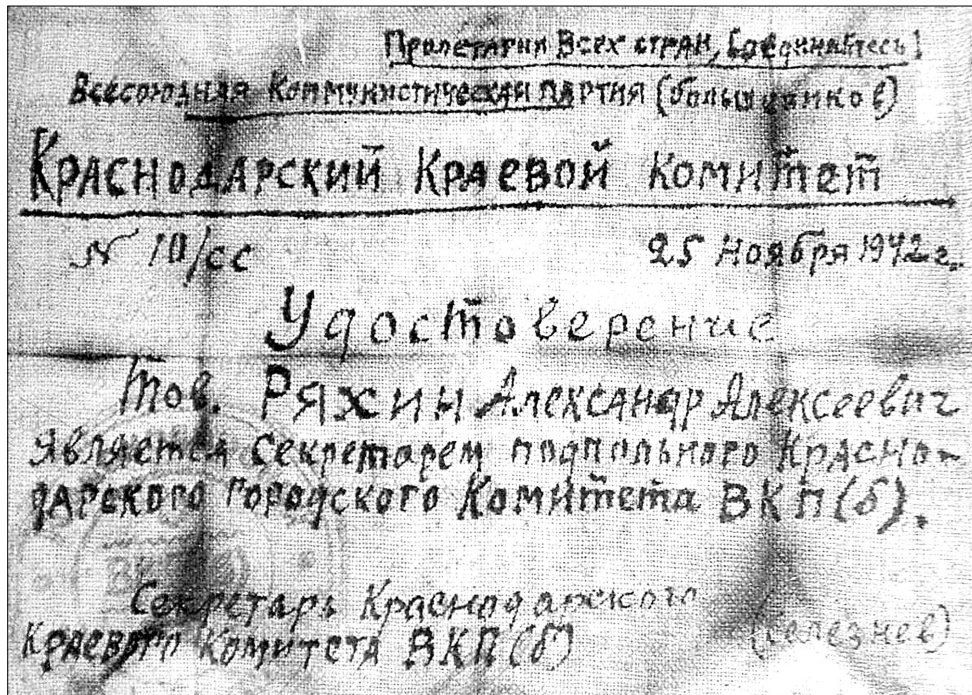 Пролетарии Всех стран, соединяйтесь!
Всесоюзная Коммунистическая партия (большевиков)
Краснодарский Краевой Комитет
№ 10/сс 25 Ноября 1942 г.
Удостоверение
Тов. Ряхин Александр Алексеевич
является секретарем подпольного Красно-
дарского городского Комитета ВКП(б).
Секретарь Краснодарского
Краевого Комитета ВКП(б) (Селезнев)